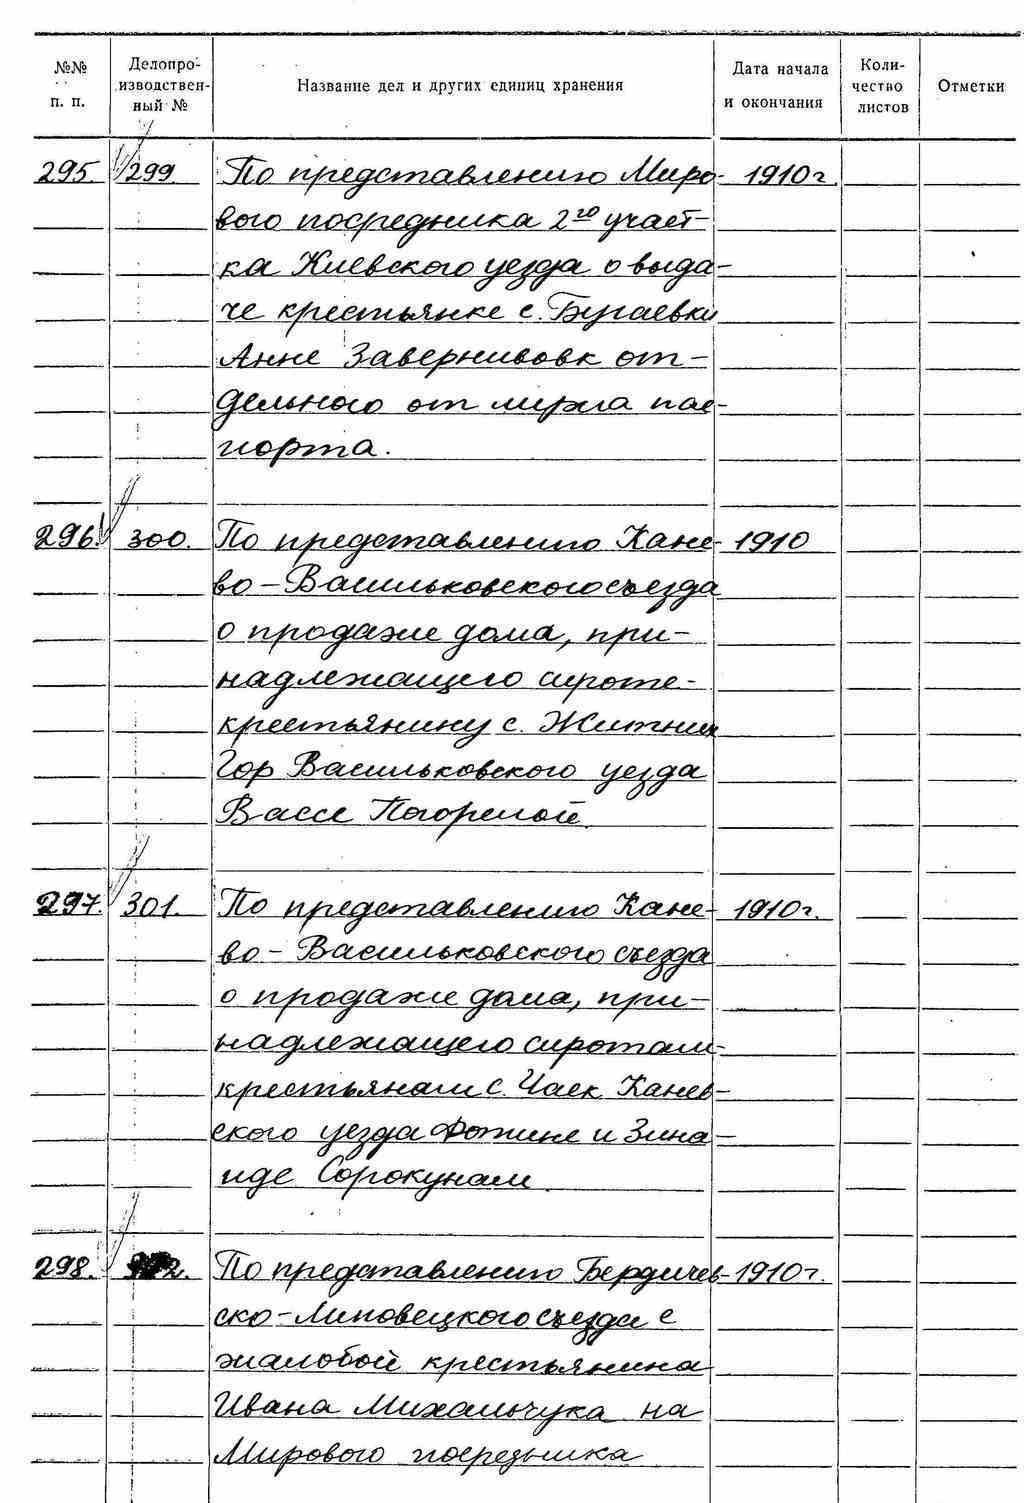 №№ п. п. Делопроизводственный № Название дел и других единиц хранения Дата начала и окончания Количество листов Отметки
295. 299 По представлению Миро- 1910 г.
вого посредника 2го участ-
ка Киевского уезда о выда-
че крестьянке с. Бугаевки
Анне от-
дельного от мужа пас-
порта.
296. 300. По представлению Кане- 1910
во-Васильковского съезда
о продаже дома, при-
надлежащего сироте-
крестьянину с. Житних
Гор Васильковского уезда
Вассе Погорелой.
297. 301. По представлению Кане- 1910 г.
во-Васильковского съезда
о продаже дома, при-
надлежащего сиротам-
крестьянам с. Чаек Канев-
ского уезда Фотине и Зина-
иде Сорокунам
298. По представлению Бердичев- 1910 г.
ско-Липовецкого съезда с
жалобой крестьянина
Ивана Михальчука на
Мирового посредника